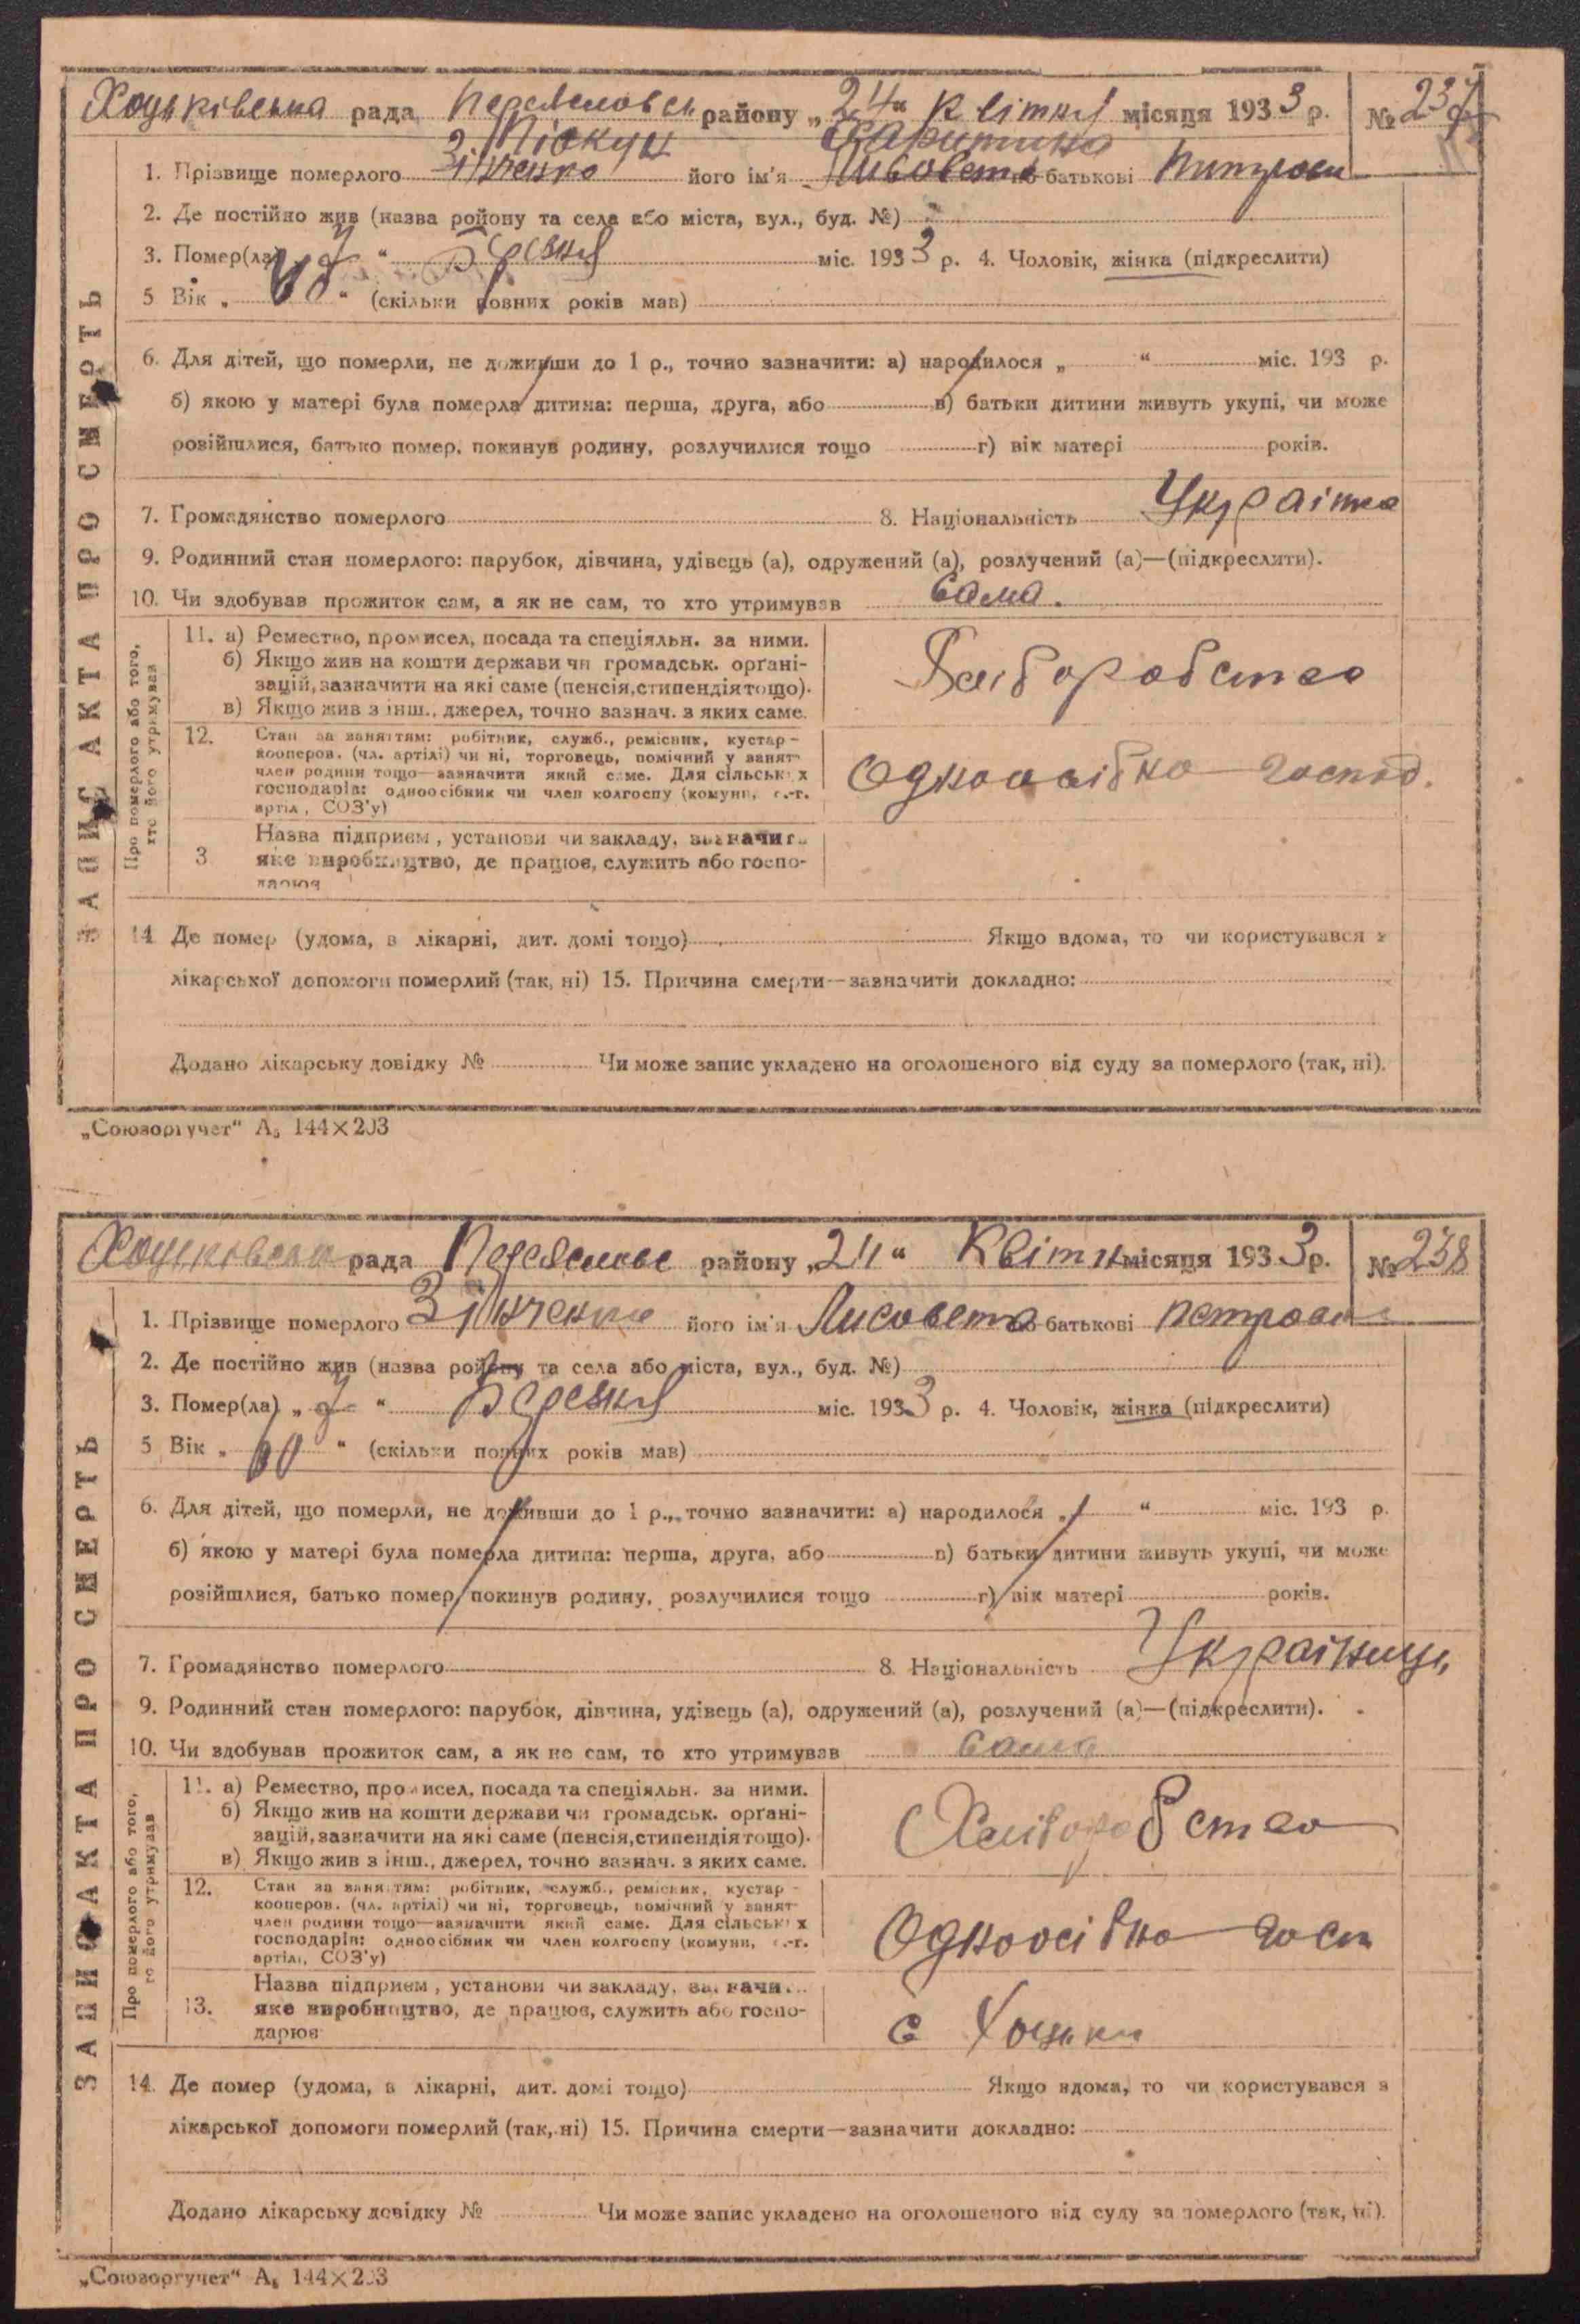 Хоцьківська рада Переяславськ району „24“ Квітня місяця 1933 р. № 237
Піскун Харитина
1. Прізвище померлого Зінченко його ім'я Лисовета по батькові Петровн
2. Де постійно жив (назва району та села або міста, вул., буд. №)
3. Помер(ла) „ “ Березня міс. 1933 р. 4. Чоловік, жінка (підкреслити)
5 Вік „ “ (скільки повних років мав)
6. Для дітей, що померли, не доживши до 1 р., точно зазначити: а) народилося „ “ міс. 193 р.
б) якою у матері була померла дитина: перша, друга, або в) батьки дитини живуть укупі, чи може
розійшлися, батько помер, покинув родину, розлучилися тощо г) вік матері років.
7. Громадянство померлого 8. Національність Українка
9. Родинний стан померлого: парубок, дівчина, удівець (а), одружений (а), розлучений (а)—(підкреслити).
10. Чи здобував прожиток сам, а як не сам, то хто утримував сама.
ЗАПИС АКТА ПРО СМЕРТЬ
Про померлого або того,
хто його утримував
11. а) Ремество, промисел, посада та спеціяльн. за ними.
б) Якщо жив на кошти держави чи громадськ. орґані-
зацій, зазначити на які саме (пенсія, стипендія тощо).
в) Якщо жив з інш., джерел, точно зазнач. з яких саме.
Хліборобство
12. Стан за заняттям: робітник, служб., ремісник, кустар-
кооперов. (чл. артілі) чи ні, торговець, помічний у занят
член родини тощо—зазначити який саме. Для сільських
господарів: одноосібник чи член колгоспу (комуни, с.-г.
артіл, СОЗ'у)
Одноосібно господ.
3 Назва підприєм, установи чи закладу, зазначит
яке виробництво, де працює, служить або госпо-
дарює
14 Де помер (удома, в лікарні, дит. домі тощо) Якщо вдома, то чи користувався з
лікарської допомоги померлий (так, ні) 15. Причина смерти—зазначити докладно:
Додано лікарську довідку № Чи може запис укладено на оголошеного від суду за померлого (так, ні).
„Союзоргучет“ А₅ 144×203
Хоцьківська рада Переяславс району „24“ Квітня місяця 1933 р. № 238
1. Прізвище померлого Зінченко його ім'я Лисовета по батькові Петровн
2. Де постійно жив (назва району та села або міста, вул., буд. №)
3. Помер(ла) „ “ Березня міс. 1933 р. 4. Чоловік, жінка (підкреслити)
5 Вік „60“ (скільки повних років мав)
6. Для дітей, що померли, не доживши до 1 р., точно зазначити: а) народилося „ “ міс. 193 р.
б) якою у матері була померла дитина: перша, друга, або в) батьки дитини живуть укупі, чи може
розійшлися, батько помер, покинув родину, розлучилися тощо г) вік матері років.
7. Громадянство померлого 8. Національність Українець
9. Родинний стан померлого: парубок, дівчина, удівець (а), одружений (а), розлучений (а)—(підкреслити).
10. Чи здобував прожиток сам, а як не сам, то хто утримував сама
ЗАПИС АКТА ПРО СМЕРТЬ
Про померлого або того,
го його утримував
11. а) Ремество, промисел, посада та спеціяльн. за ними.
б) Якщо жив на кошти держави чи громадськ. орґані-
зацій, зазначити на які саме (пенсія, стипендія тощо).
в) Якщо жив з інш., джерел, точно зазнач. з яких саме.
Хліборобство
12. Стан за заняттям: робітник, служб., ремісник, кустар-
кооперов. (чл. артілі) чи ні, торговець, помічний у занят
член родини тощо—зазначити який саме. Для сільських
господарів: одноосібник чи член колгоспу (комуни, с.-г.
артілі, СОЗ'у)
Одноосібно госп
13. Назва підприєм, установи чи закладу, зазначи
яке виробництво, де працює, служить або госпо-
дарює
с Хоцьки
14. Де помер (удома, в лікарні, дит. домі тощо) Якщо вдома, то чи користувався з
лікарської допомоги померлий (так, ні) 15. Причина смерти—зазначити докладно:
Додано лікарську довідку № Чи може запис укладено на оголошеного від суду за померлого (так, ні).
„Союзоргучет“ А₅ 144×203